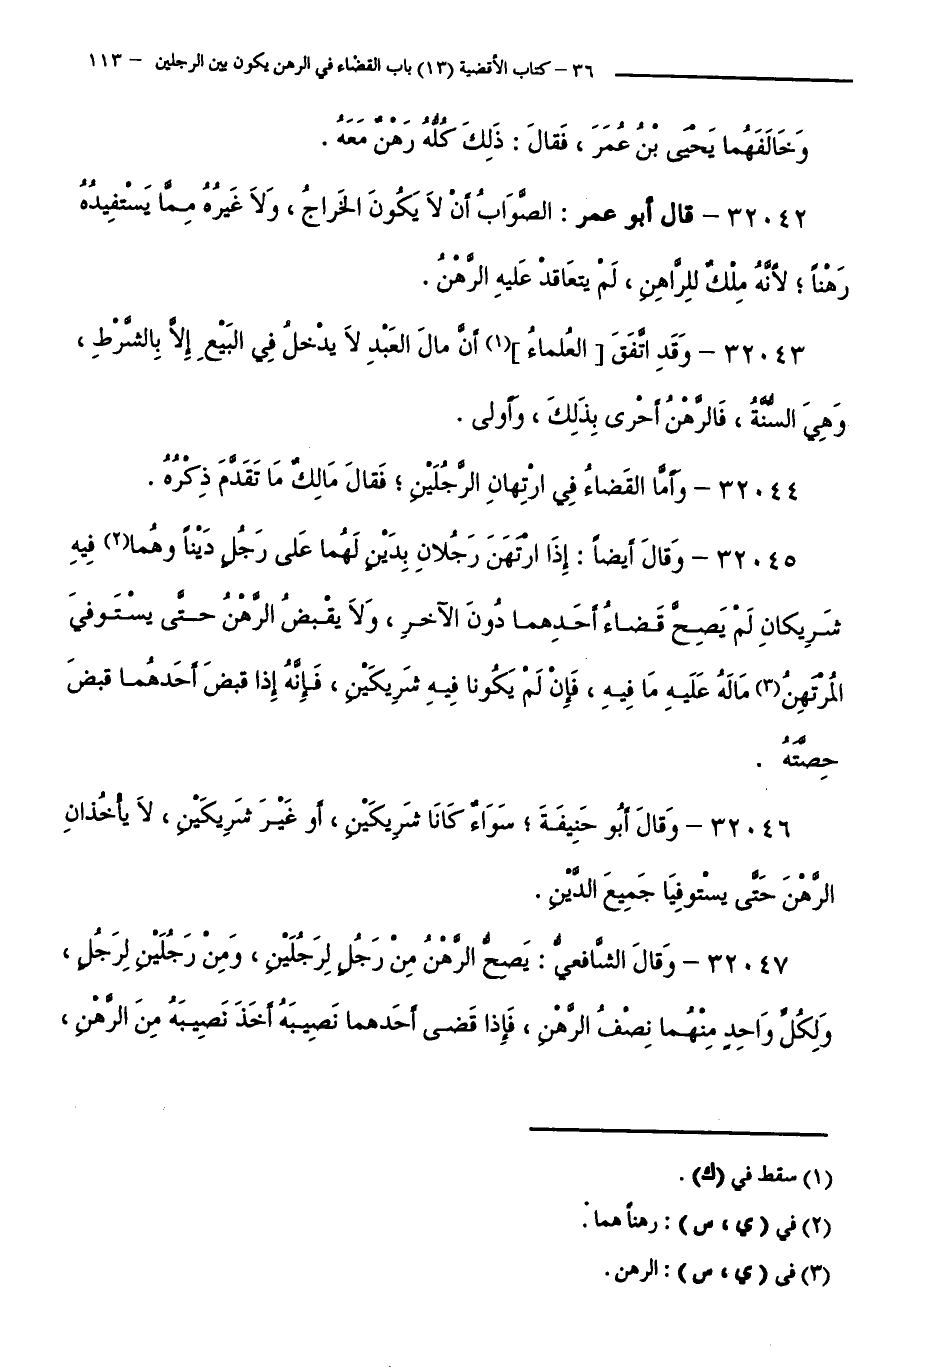 ٣٦ – كتاب الأقضية (١٣) باب القضاء في الرهن يكون بين الرجلين – ١١٣
وَخَالَفَهُما يَحْيَى بْنُ عُمَرَ ، فَقالَ : ذَلِكَ كُلُّهُ رَهْنٌ مَعَهُ .
٣٢٠٤٢ – قال أبو عمر : الصَّوَابُ أَنْ لاَ يَكُونَ الخَراجُ ، وَلاَ غَيْرُهُ مِمَّا يَسْتَفِيدُهُ
رَهْناً ؛ لأَنَّهُ مِلْكٌ لِلرَّاهِنِ ، لَمْ يتعَاقدْ عَليهِ الرَّهْنُ .
٣٢٠٤٣ – وَقَدِ اتَّفَقَ [ العُلماءُ ](١) أَنَّ مالَ العَبْدِ لاَ يدْخلُ فِي البَيْعِ إِلاَّ بِالشَّرْطِ ،
وَهِيَ السُنَّةُ ، فَالرَّهْنُ أَحْرى بِذَلِكَ ، وَأَولى .
٣٢٠٤٤ – وَأَمَّا القَضاءُ فِي ارْتِهانِ الرَّجُلَيْنِ ؛ فَقالَ مَالِكٌ مَا تَقَدَّمَ ذِكْرُهُ .
٣٢٠٤٥ – وَقَالَ أَيضاً : إِذَا ارْتَهَنَ رَجُلانِ بِدَيْنٍ لَهُما عَلى رَجُلٍ دَيْناً وهُما(٢) فِيهِ
شَرِيكانِ لَمْ يَصِحَّ قَضاءُ أَحَدِهما دُونَ الآخرِ ، وَلاَ يقْبضُ الرَّهْنُ حتَّى يسْتَوفيَ
المُرْتَهِنُ(٣) مَالَهُ عَلَيهِ مَا فِيهِ ، فَإِنْ لَمْ يَكُونا فِيهِ شَرِيكَيْنِ ، فَإِنَّهُ إِذا قبضَ أَحَدهُما قبضَ
حِصتَّهُ .
٣٢٠٤٦ – وَقَالَ أَبُو حَنِيفَةَ ؛ سَوَاءٌ كَانَا شَرِيكَيْنِ ، أَو غَيْرَ شَرِيكَيْنِ ، لاَ يأخُذانِ
الرَّهْنَ حَتَّى يسْتوفِيَا جَمِيعَ الدَّيْنِ .
٣٢٠٤٧ – وَقَالَ الشَّافعيُّ : يَصحُّ الرَّهْنُ مِنْ رَجُلٍ لِرَجُلَيْنِ ، وَمِنْ رَجُلَيْنِ لِرَجُلٍ ،
وَلِكُلِّ وَاحِدٍ مِنْهُما نِصْفُ الرَّهْنِ ، فَإِذا قضَى أَحَدهما نَصِيبَهُ أَخَذَ نَصِيبَهُ مِنَ الرَّهْنِ ،
(١) سقط في (ك) .
(٢) في ( ي ، س ) : رهناً هما .
(٣) في ( ي ، س ) : الرهن .